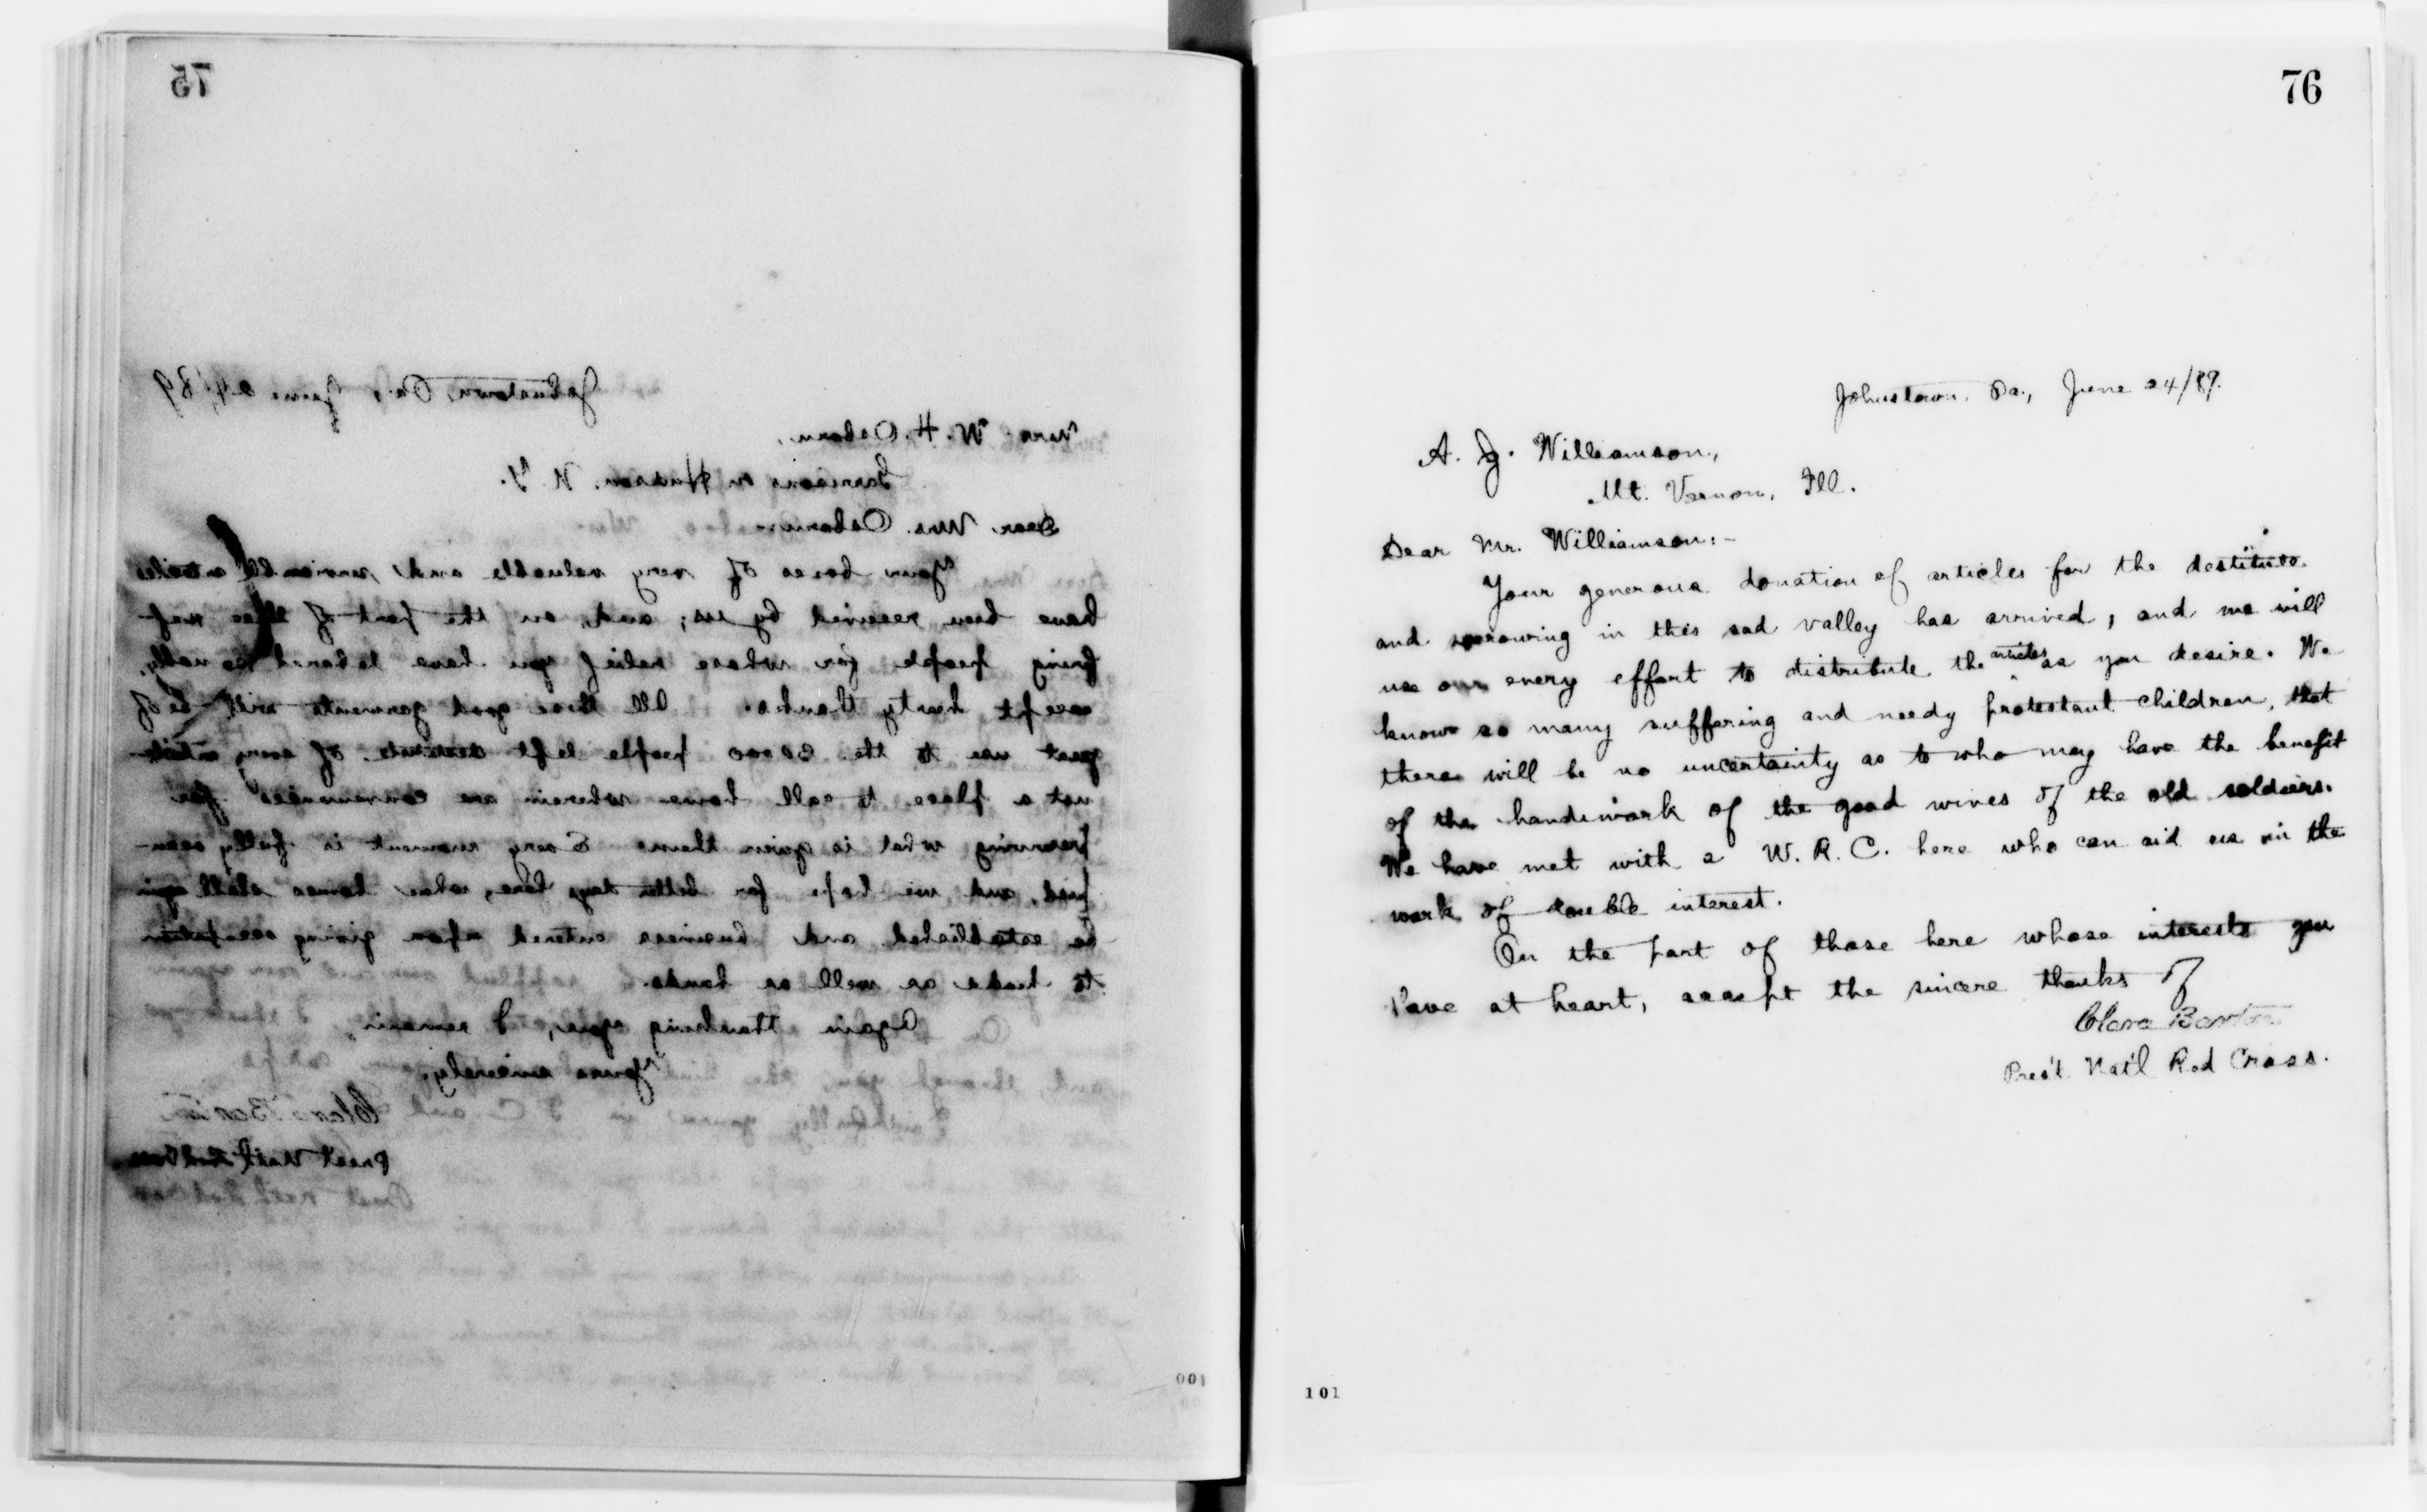 75
Johnstown, Pa., June 24/89
Mrs. W. H. Osborn,
Garrisons on Hudson, N. Y.
Dear Mrs. Osborn:
Your boxes of very valuable and serviceable articles
have been received by us; and, on the part of the suf-
fering people for whose relief you have labored so nobly,
accept hearty thanks. All these good garments will be of
great use to the 30000 people left destitute of every article
not a place to call home wherein are conveniences for
preparing what is given them. Every moment is fully occu-
pied, and we hope for better days here, when homes shall again
be established and business entered upon giving occupation
to heads as well as hands.
Again thanking you, I remain,
Yours sincerely,
Clara Barton
Pres't Nat'l Red Cross
100
76
Johnstown, Pa., June 24/89.
A. J. Williamson,
Mt. Vernon, Ill.
Dear Mr. Williamson:-
Your generous donation of articles for the destitute
and sorrowing in this sad valley has arrived, and we will
use our every effort to distribute the articles as you desire. We
know so many suffering and needy protestant children, that
there will be no uncertainty as to who may have the benefit
of the handiwork of the good wives of the old soldiers.
We have met with a W. R. C. here who can aid us in the
work of double interest.
On the part of those here whose interests you
have at heart, accept the sincere thanks of
Clara Barton
Pres't. Nat'l Red Cross.
101